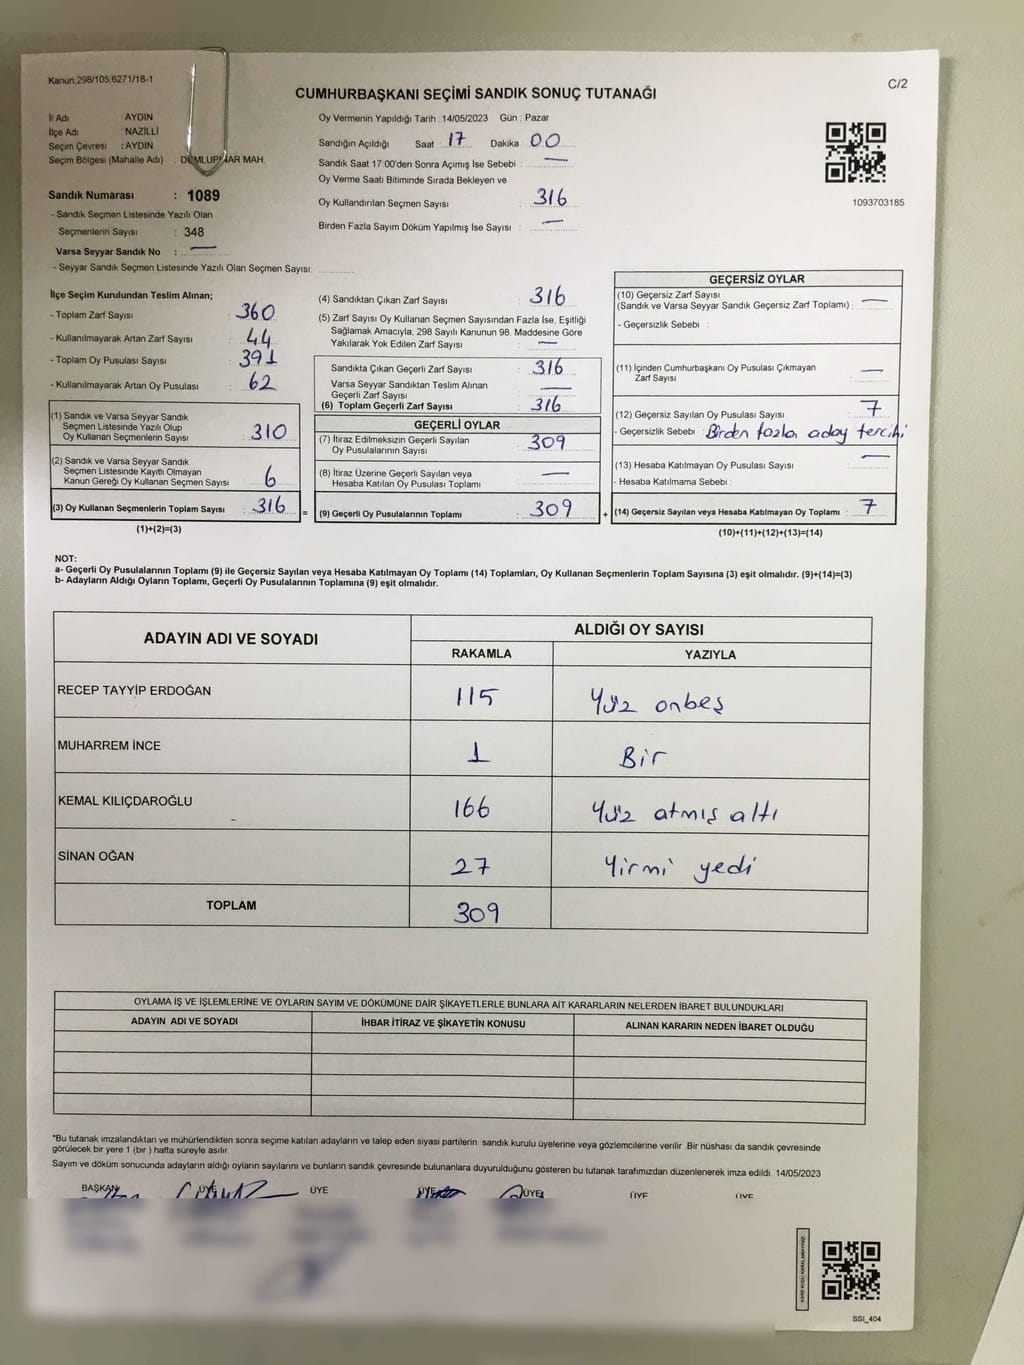 Kanun,298/105,6271/16-1
C/2
CUMHURBAŞKANI SEÇİMİ SANDIK SONUÇ TUTANAĞI
İl Adı AYDIN
İlçe Adı NAZİLLİ
Seçim Çevresi : AYDIN
Seçim Bölgesi (Mahalle Adı) : DUMLUPINAR MAH.
Sandık Numarası : 1089
- Sandık Seçmen Listesinde Yazılı Olan
Seçmenlerin Sayısı : 348
Varsa Seyyar Sandık No : —
- Seyyar Sandık Seçmen Listesinde Yazılı Olan Seçmen Sayısı:
Oy Vermenin Yapıldığı Tarih : 14/05/2023 Gün : Pazar
Sandığın Açıldığı Saat : 17 Dakika : 00
Sandık Saat 17:00'den Sonra Açımış İse Sebebi : —
Oy Verme Saati Bitiminde Sırada Bekleyen ve
Oy Kullandırılan Seçmen Sayısı : 316
Birden Fazla Sayım Döküm Yapılmış İse Sayısı : —
1093703185
İlçe Seçim Kurulundan Teslim Alınan;
- Toplam Zarf Sayısı : 360
- Kullanılmayarak Artan Zarf Sayısı : 44
- Toplam Oy Pusulası Sayısı : 391
- Kullanılmayarak Artan Oy Pusulası : 62
(1) Sandık ve Varsa Seyyar Sandık
Seçmen Listesinde Yazılı Olup
Oy Kullanan Seçmenlerin Sayısı : 310
(2) Sandık ve Varsa Seyyar Sandık
Seçmen Listesinde Kayıtlı Olmayan
Kanun Gereği Oy Kullanan Seçmen Sayısı : 6
(3) Oy Kullanan Seçmenlerin Toplam Sayısı : 316 =
(1)+(2)=(3)
(4) Sandıktan Çıkan Zarf Sayısı : 316
(5) Zarf Sayısı Oy Kullanan Seçmen Sayısından Fazla İse, Eşitliği
Sağlamak Amacıyla, 298 Sayılı Kanunun 98. Maddesine Göre
Yakılarak Yok Edilen Zarf Sayısı : —
Sandıkta Çıkan Geçerli Zarf Sayısı : 316
Varsa Seyyar Sandıktan Teslim Alınan
Geçerli Zarf Sayısı : —
(6) Toplam Geçerli Zarf Sayısı : 316
GEÇERLİ OYLAR
(7) İtiraz Edilmeksizin Geçerli Sayılan
Oy Pusulalarının Sayısı : 309
(8) İtiraz Üzerine Geçerli Sayılan veya
Hesaba Katılan Oy Pusulası Toplamı : —
(9) Geçerli Oy Pusulalarının Toplamı : 309 +
GEÇERSİZ OYLAR
(10) Geçersiz Zarf Sayısı
(Sandık ve Varsa Seyyar Sandık Geçersiz Zarf Toplamı) : —
- Geçersizlik Sebebi :
(11) İçinden Cumhurbaşkanı Oy Pusulası Çıkmayan
Zarf Sayısı : —
(12) Geçersiz Sayılan Oy Pusulası Sayısı : 7
- Geçersizlik Sebebi : Birden fazla aday tercihi
(13) Hesaba Katılmayan Oy Pusulası Sayısı : —
- Hesaba Katılmama Sebebi :
(14) Geçersiz Sayılan veya Hesaba Katılmayan Oy Toplamı : 7
(10)+(11)+(12)+(13)=(14)
NOT:
a- Geçerli Oy Pusulalarının Toplamı (9) ile Geçersiz Sayılan veya Hesaba Katılmayan Oy Toplamı (14) Toplamları, Oy Kullanan Seçmenlerin Toplam Sayısına (3) eşit olmalıdır. (9)+(14)=(3)
b- Adayların Aldığı Oyların Toplamı, Geçerli Oy Pusulalarının Toplamına (9) eşit olmalıdır.
ADAYIN ADI VE SOYADI ALDIĞI OY SAYISI
RAKAMLA YAZIYLA
RECEP TAYYİP ERDOĞAN 115 Yüz onbeş
MUHARREM İNCE 1 Bir
KEMAL KILIÇDAROĞLU 166 Yüz atmış altı
SİNAN OĞAN 27 Yirmi yedi
TOPLAM 309
OYLAMA İŞ VE İŞLEMLERİNE VE OYLARIN SAYIM VE DÖKÜMÜNE DAİR ŞİKAYETLERLE BUNLARA AİT KARARLARIN NELERDEN İBARET BULUNDUKLARI
ADAYIN ADI VE SOYADI İHBAR İTİRAZ VE ŞİKAYETİN KONUSU ALINAN KARARIN NEDEN İBARET OLDUĞU
*Bu tutanak imzalandıktan ve mühürlendikten sonra seçime katılan adayların ve talep eden siyasi partilerin sandık kurulu üyelerine veya gözlemcilerine verilir. Bir nüshası da sandık çevresinde
görülecek bir yere 1 (bir ) hafta süreyle asılır.
Sayım ve döküm sonucunda adayların aldığı oyların sayılarını ve bunların sandık çevresinde bulunanlara duyurulduğunu gösteren bu tutanak tarafımızdan düzenlenerek imza edildi. 14/05/2023
BAŞKAN ÜYE ÜYE ÜYE ÜYE ÜYE ÜYE
KARE KODU KARALAMAYINIZ!
SSI_404